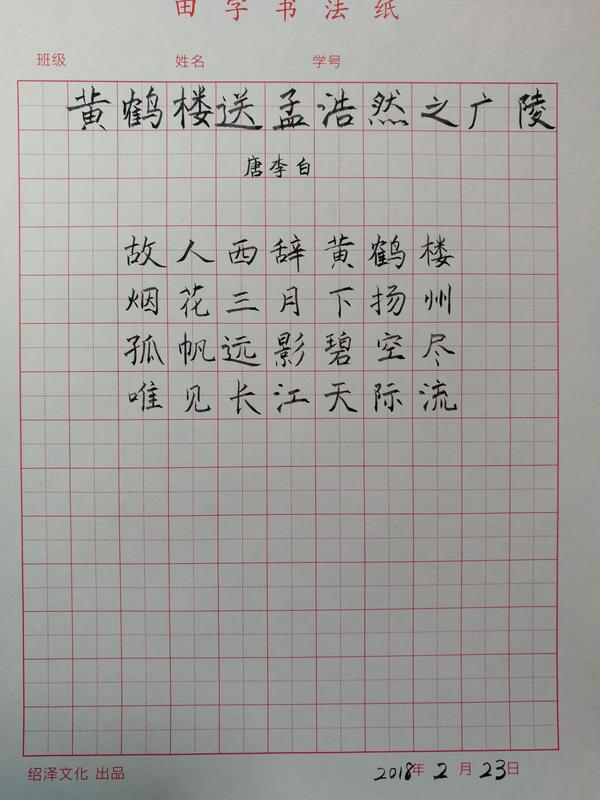 田字书法纸
班级 姓名 学号
黄鹤楼送孟浩然之广陵
唐李白
故人西辞黄鹤楼
烟花三月下扬州
孤帆远影碧空尽
唯见长江天际流
绍泽文化 出品 2018年2月23日